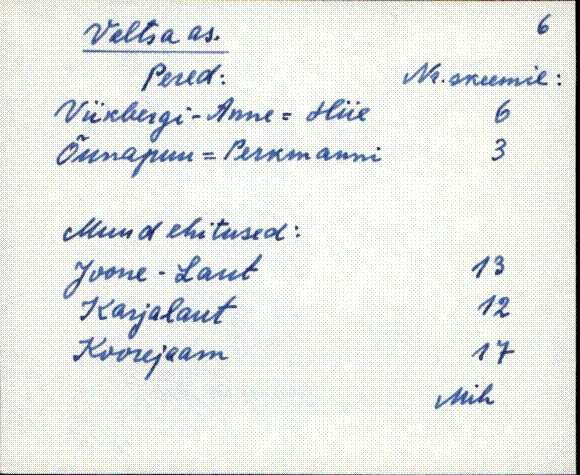 6
Veltsa as.
Pered: Nr. skeemil:
Viikbergi - Anne = Hiie 6
Õunapuu = Perkmanni 3
Muud ehitused:
Joone - Laut 13
Karjalaut 12
Koorejaam 17